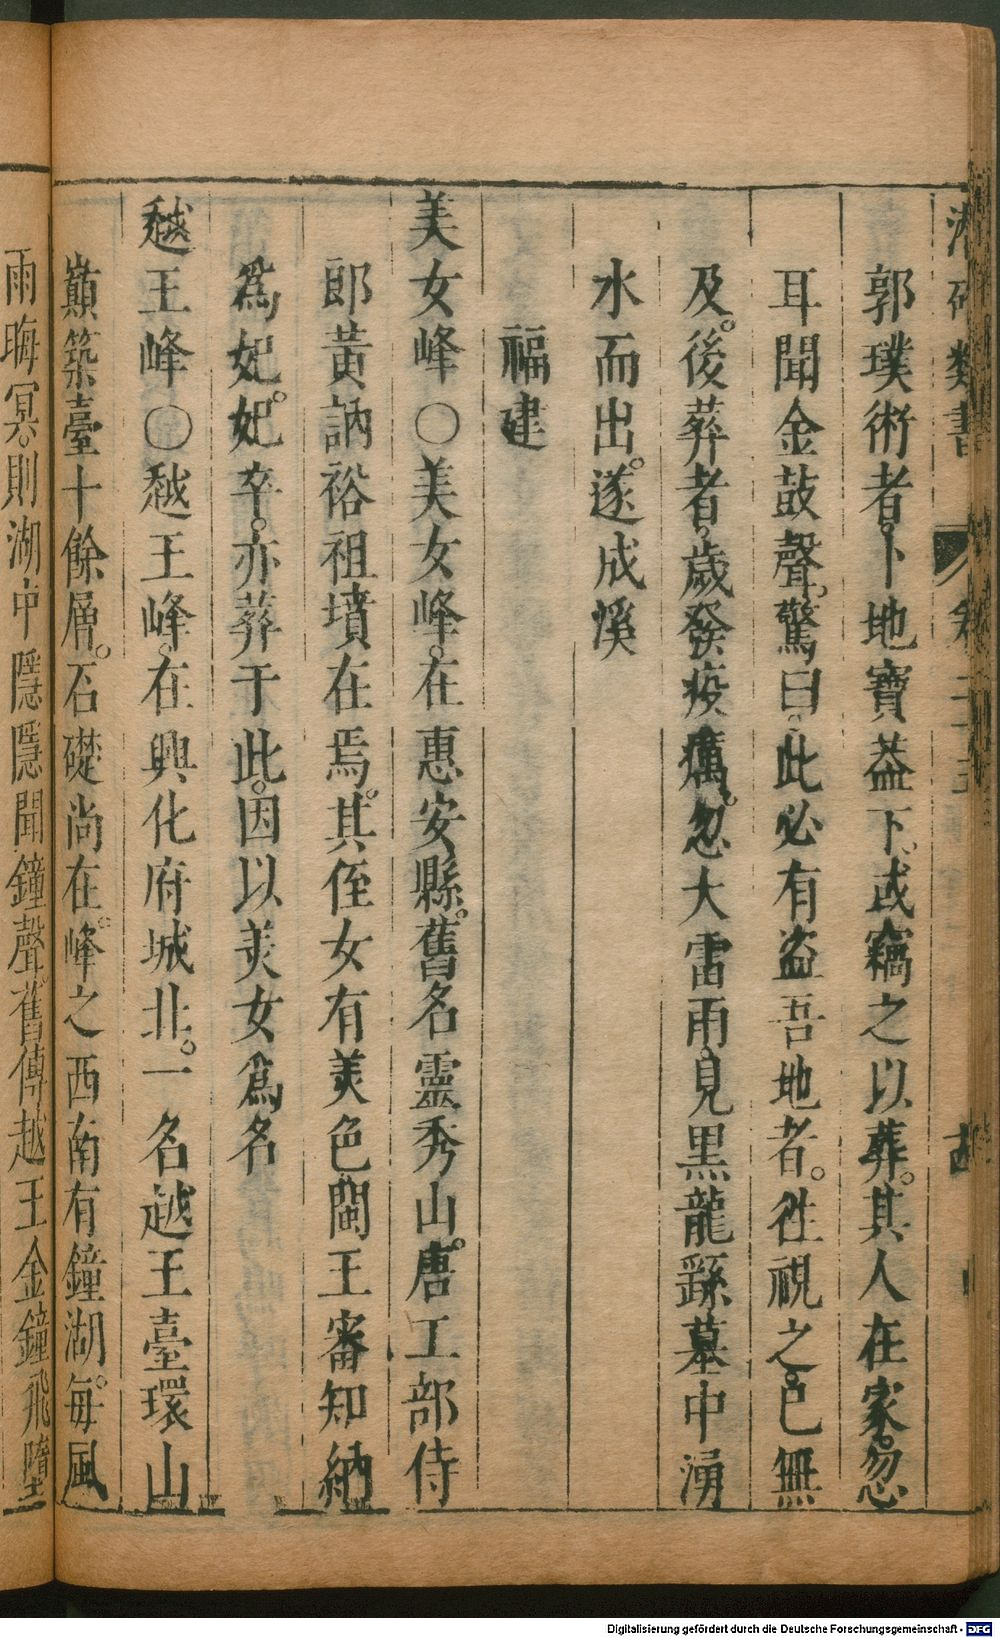 類書
郭璞術者。卜地寶葢下。或竊之以葬。其人在家。忽
耳聞金鼓聲。驚曰。此必有盗吾地者。徃視之。已無
及。後葬者。歲發疫癘。忽大雷雨。見黑龍繇墓中湧
水而出。遂成溪
福建
美女峰○美女峰。在惠安縣。舊名靈秀山。唐工部侍
郎黃訥裕祖墳在焉。其侄女有美色閩王審知納
爲妃。妃卒。亦葬于此。因以美女爲名
越王峰○越王峰。在興化府城北。一名越王臺環山
巔築臺十餘層。石礎尚在。峰之西南有鐘湖。每風
雨晦冥。則湖中隱隱聞鐘聲。舊傳越王金鐘飛墮
Digitalisierung gefördert durch die Deutsche Forschungsgemeinschaft - DFG